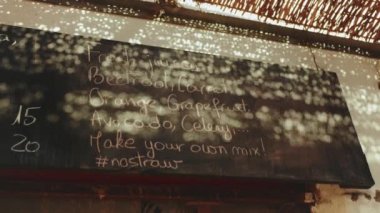 Fresh juices
Beetroot, Carrot,
Orange, Grapefruit,
15 Avocado, Celery,...
20 Make your own mix!
#nostraw